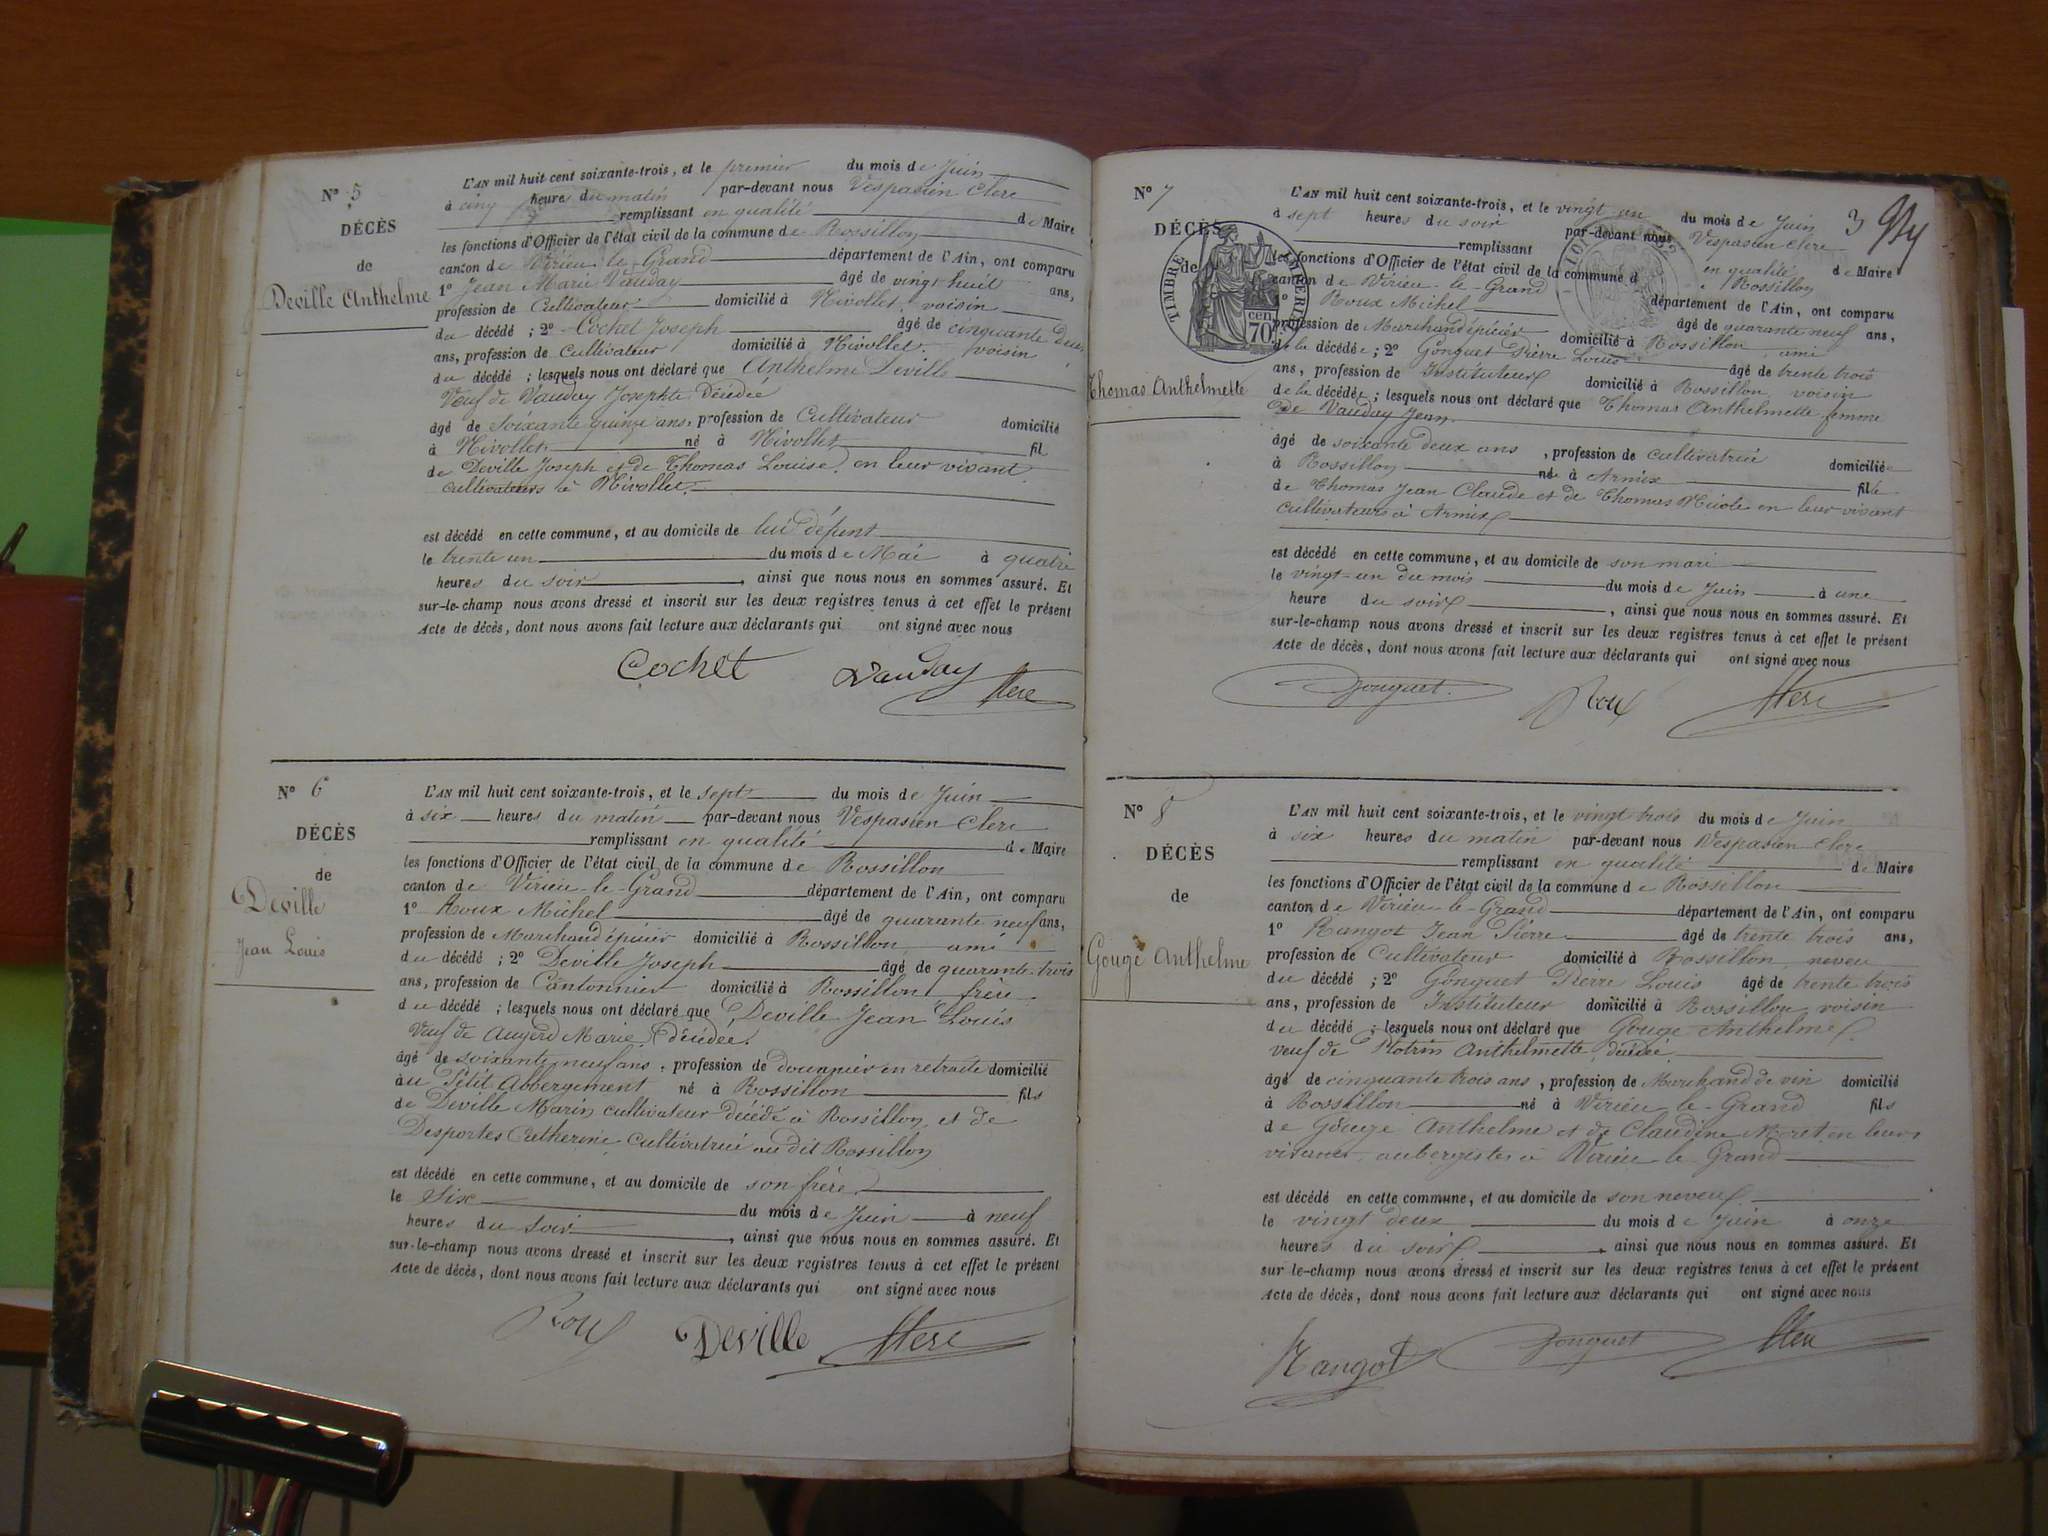 N° 5
DÉCÈS
de
Deville Anthelme
L'AN mil huit cent soixante-trois, et le premier du mois de Juin
à cinq heures du matin par-devant nous Vespasien Clerc
remplissant en qualité de Maire
les fonctions d'Officier de l'état civil de la commune de Rossillon
canton de Virieu-le-Grand département de l'Ain, ont comparu
1° Jean Marie Vauday âgé de vingt huit ans,
profession de Cultivateur domicilié à Nivollet, voisin
du décédé ; 2° Cochet Joseph âgé de cinquante deux
ans, profession de Cultivateur domicilié à Nivollet, voisin
du décédé ; lesquels nous ont déclaré que Anthelme Deville
Veuf de Vauday Josephte Décédée
âgé de soixante quinze ans, profession de Cultivateur domicilié
à Nivollet né à Nivollet fil
de Deville Joseph et de Thomas Louise, en leur vivant
cultivateurs à Nivollet.
est décédé en cette commune, et au domicile de lui défunt
le trente un du mois de Mai à quatre
heures du soir, ainsi que nous nous en sommes assuré. Et
sur-le-champ nous avons dressé et inscrit sur les deux registres tenus à cet effet le présent
Acte de décès, dont nous avons fait lecture aux déclarants qui ont signé avec nous
Cochet Vauday Clerc
N° 6
DÉCÈS
de
Deville
Jean Louis
L'AN mil huit cent soixante-trois, et le sept du mois de Juin
à six heures du matin par-devant nous Vespasien Clerc
remplissant en qualité de Maire
les fonctions d'Officier de l'état civil de la commune de Rossillon
canton de Virieu-le-Grand département de l'Ain, ont comparu
1° Roux Michel âgé de quarante neuf ans,
profession de Marchand épicier domicilié à Rossillon, ami
du décédé ; 2° Deville Joseph âgé de quarante-trois
ans, profession de Cantonnier domicilié à Rossillon, frère
du décédé ; lesquels nous ont déclaré que Deville Jean Louis
Veuf de Augerd Marie, décédée.
âgé de soixante neuf ans, profession de douanier en retraite domicilié
au Petit Abbergement né à Rossillon fils
de Deville Marin cultivateur décédé à Rossillon, et de
Desportes Catherine, cultivatrice au dit Rossillon
est décédé en cette commune, et au domicile de son frère
le Six du mois de Juin à neuf
heures du soir, ainsi que nous nous en sommes assuré. Et
sur-le-champ nous avons dressé et inscrit sur les deux registres tenus à cet effet le présent
Acte de décès, dont nous avons fait lecture aux déclarants qui ont signé avec nous
Roux Deville Clerc
3
N° 7
DÉCÈS
de
TIMBRE IMPERIAL
70 cen
Thomas Anthelmette
L'AN mil huit cent soixante-trois, et le vingt un du mois de Juin
à sept heures du soir par-devant nous Vespasien Clerc
remplissant en qualité de Maire
les fonctions d'Officier de l'état civil de la commune d Rossillon
canton de Virieu-le-Grand département de l'Ain, ont comparu
1° Roux Michel âgé de quarante neuf ans,
profession de Marchand épicier domicilié à Rossillon, ami
de la décédée ; 2° Gonguet Pierre Louis âgé de trente trois
ans, profession de Instituteur domicilié à Rossillon, voisin
de la décédée ; lesquels nous ont déclaré que Thomas Anthelmette femme
de Vauday Jean
âgé de soixante deux ans, profession de cultivatrice domiciliée
à Rossillon née à Armix fille
de Thomas Jean Claude et de Thomas Nicole en leur vivant
cultivateurs à Armix
est décédé en cette commune, et au domicile de son mari
le vingt-un du mois du mois de Juin à une
heure du soir, ainsi que nous nous en sommes assuré. Et
sur-le-champ nous avons dressé et inscrit sur les deux registres tenus à cet effet le présent
Acte de décès, dont nous avons fait lecture aux déclarants qui ont signé avec nous
Gonguet Roux Clerc
N° 8
DÉCÈS
de
Gouge Anthelme
L'AN mil huit cent soixante-trois, et le vingt trois du mois de Juin
à six heures du matin par-devant nous Vespasien Clerc
remplissant en qualité de Maire
les fonctions d'Officier de l'état civil de la commune de Rossillon
canton de Virieu-le-Grand département de l'Ain, ont comparu
1° Rangot Jean Pierre âgé de trente trois ans,
profession de Cultivateur domicilié à Rossillon, neveu
du décédé ; 2° Gonguet Pierre Louis âgé de trente trois
ans, profession de Instituteur domicilié à Rossillon, voisin
du décédé ; lesquels nous ont déclaré que Gouge Anthelme
veuf de Anthelmette, décédée
âgé de cinquante trois ans, profession de Marchand de vin domicilié
à Rossillon né à Virieu-le-Grand fils
de Gouge Anthelme et de Claudine Moret en leurs
vivants aubergistes à Virieu le Grand
est décédé en cette commune, et au domicile de son neveu
le vingt deux du mois de Juin à onze
heures du soir, ainsi que nous nous en sommes assuré. Et
sur le-champ nous avons dressé et inscrit sur les deux registres tenus à cet effet le présent
Acte de décès, dont nous avons fait lecture aux déclarants qui ont signé avec nous
Rangot Gonguet Clerc